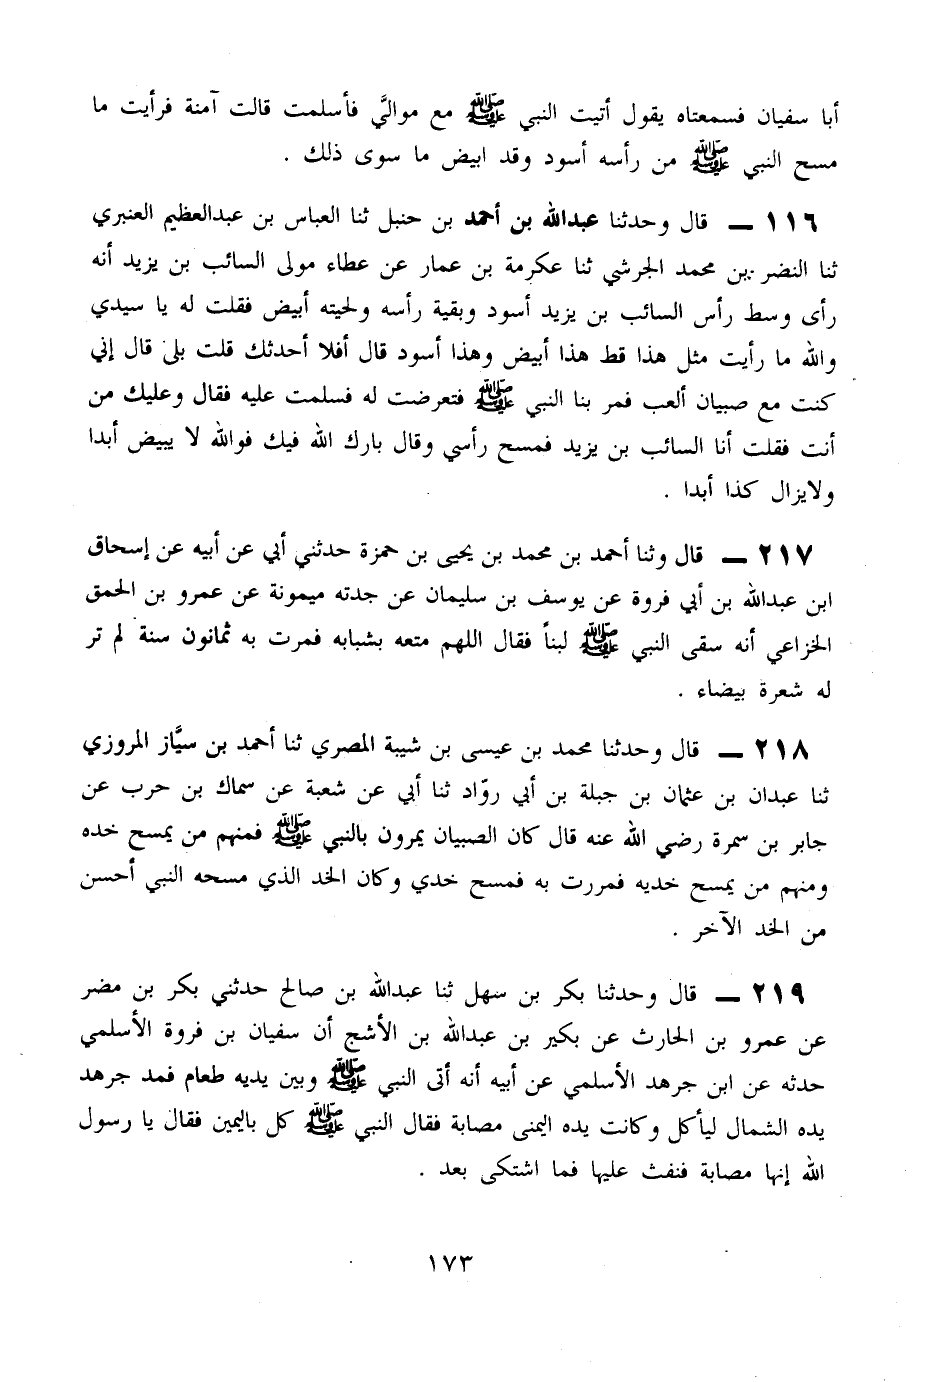 أبا سفيان فسمعتاه يقول أتيت النبي ﷺ مع مواليَّ فأسلمت قالت آمنة فرأيت ما
مسح النبي ﷺ من رأسه أسود وقد ابيض ما سوى ذلك .
١١٦ ــ قال وحدثنا عبدالله بن أحمد بن حنبل ثنا العباس بن عبدالعظيم العنبري
ثنا النضر بن محمد الجرشي ثنا عكرمة بن عمار عن عطاء مولى السائب بن يزيد أنه
رأى وسط رأس السائب بن يزيد أسود وبقية رأسه ولحيته أبيض فقلت له يا سيدي
والله ما رأيت مثل هذا قط هذا أبيض وهذا أسود قال أفلا أحدثك قلت بلى قال إني
كنت مع صبيان ألعب فمر بنا النبي ﷺ فتعرضت له فسلمت عليه فقال وعليك من
أنت فقلت أنا السائب بن يزيد فمسح رأسي وقال بارك الله فيك فوالله لا يبيض أبدا
ولايزال كذا أبدا .
٢١٧ ــ قال وثنا أحمد بن محمد بن يحيى بن حمزة حدثني أبي عن أبيه عن إسحاق
ابن عبدالله بن أبي فروة عن يوسف بن سليمان عن جدته ميمونة عن عمرو بن الحمق
الخزاعي أنه سقى النبي ﷺ لبناً فقال اللهم متعه بشبابه فمرت به ثمانون سنة لم تر
له شعرة بيضاء .
٢١٨ ــ قال وحدثنا محمد بن عيسى بن شيبة المصري ثنا أحمد بن سيَّاز المروزي
ثنا عبدان بن عثمان بن جبلة بن أبي روّاد ثنا أبي عن شعبة عن سماك بن حرب عن
جابر بن سمرة رضي الله عنه قال كان الصبيان يمرون بالنبي ﷺ فمنهم من يمسح خده
ومنهم من يمسح خديه فمررت به فمسح خدي وكان الخد الذي مسحه النبي أحسن
من الخد الآخر .
٢١٩ ــ قال وحدثنا بكر بن سهل ثنا عبدالله بن صالح حدثني بكر بن مضر
عن عمرو بن الحارث عن بكير بن عبدالله بن الأشج أن سفيان بن فروة الأسلمي
حدثه عن ابن جرهد الأسلمي عن أبيه أنه أتى النبي ﷺ وبين يديه طعام فمد جرهد
يده الشمال ليأكل وكانت يده اليمنى مصابة فقال النبي ﷺ كل باليمين فقال يا رسول
الله إنها مصابة فنفث عليها فما اشتكى بعد .
١٧٣